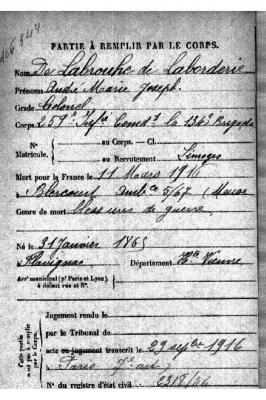 PARTIE À REMPLIR PAR LE CORPS.
Nom De Labrouhe de Laborderie
Prénoms André Marie Joseph.
Grade Colonel
Corps 259e Infie Comdt la 134e Brigade
N° Matricule.
au Corps. — Cl.
au Recrutement Limoges
Mort pour la France le 11 Mars 1916
à Blercourt Ambce 5/67 (Meuse
Genre de mort Blessures de guerre
Né le 31 Janvier 1865
à Flavignac Département Hte Vienne
Arrt municipal (pr Paris et Lyon),
à défaut rue et N°.
Cette partie
n'est pas à remplir
par le Corps.
Jugement rendu le
par le Tribunal de
acte ou jugement transcrit le 29 sepbre 1916
à Paris 7e art
N° du registre d'état civil